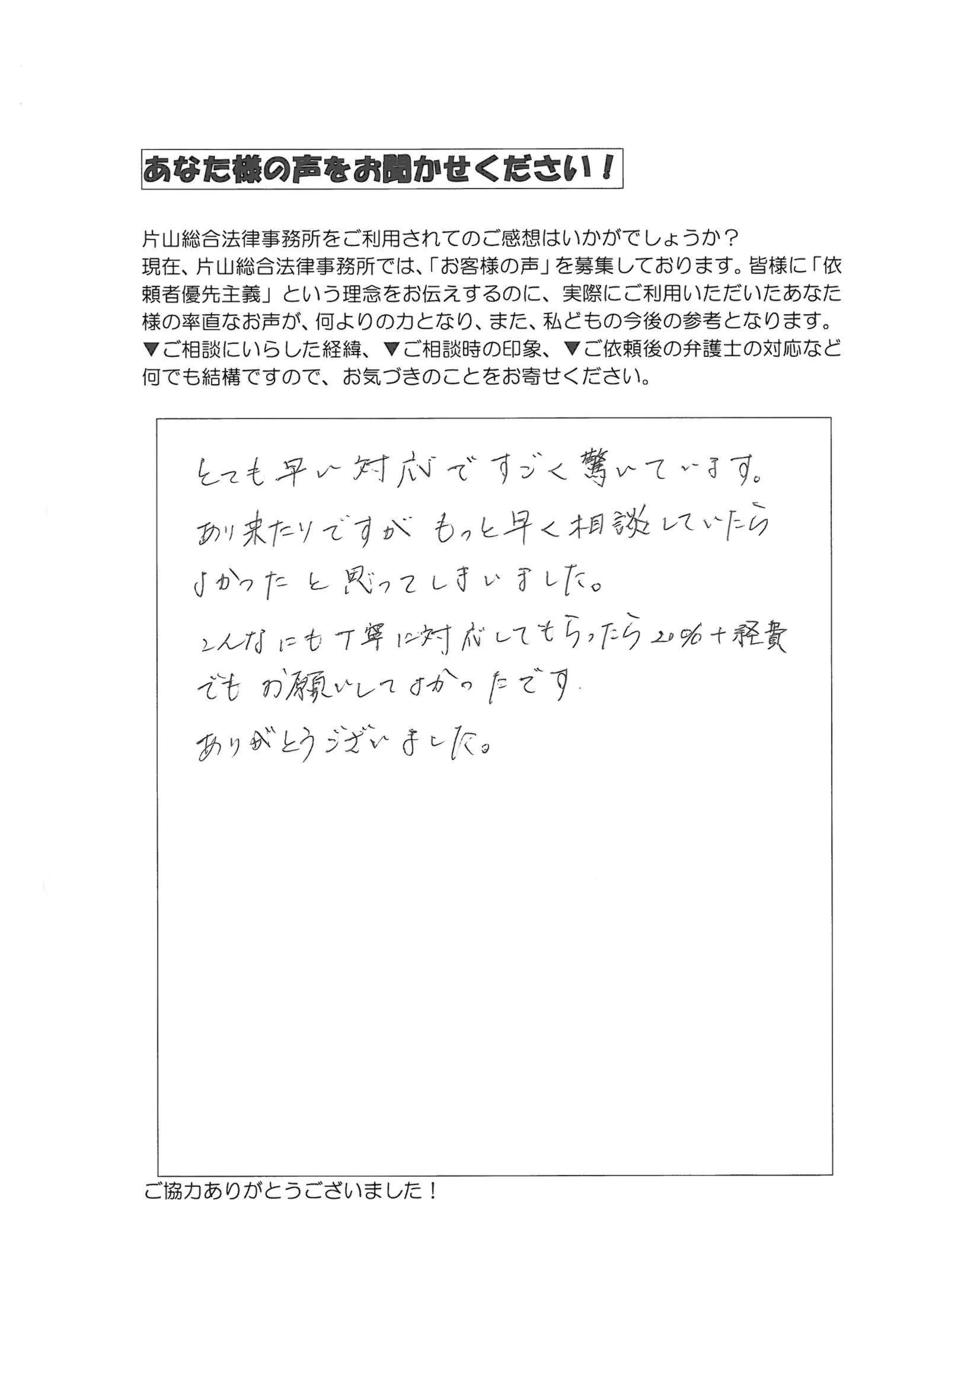 あなた様の声をお聞かせください！
片山総合法律事務所をご利用されてのご感想はいかがでしょうか？
現在、片山総合法律事務所では、「お客様の声」を募集しております。皆様に「依
頼者優先主義」という理念をお伝えするのに、実際にご利用いただいたあなた
様の率直なお声が、何よりの力となり、また、私どもの今後の参考となります。
▼ご相談にいらした経緯、▼ご相談時の印象、▼ご依頼後の弁護士の対応など
何でも結構ですので、お気づきのことをお寄せください。
とても早い対応ですごく驚いています。
あり来たりですがもっと早く相談していたら
よかったと思ってしまいました。
こんなにも丁寧に対応してもらったら20%+経費
でもお願いしてよかったです.
ありがとうございました。
ご協力ありがとうございました！